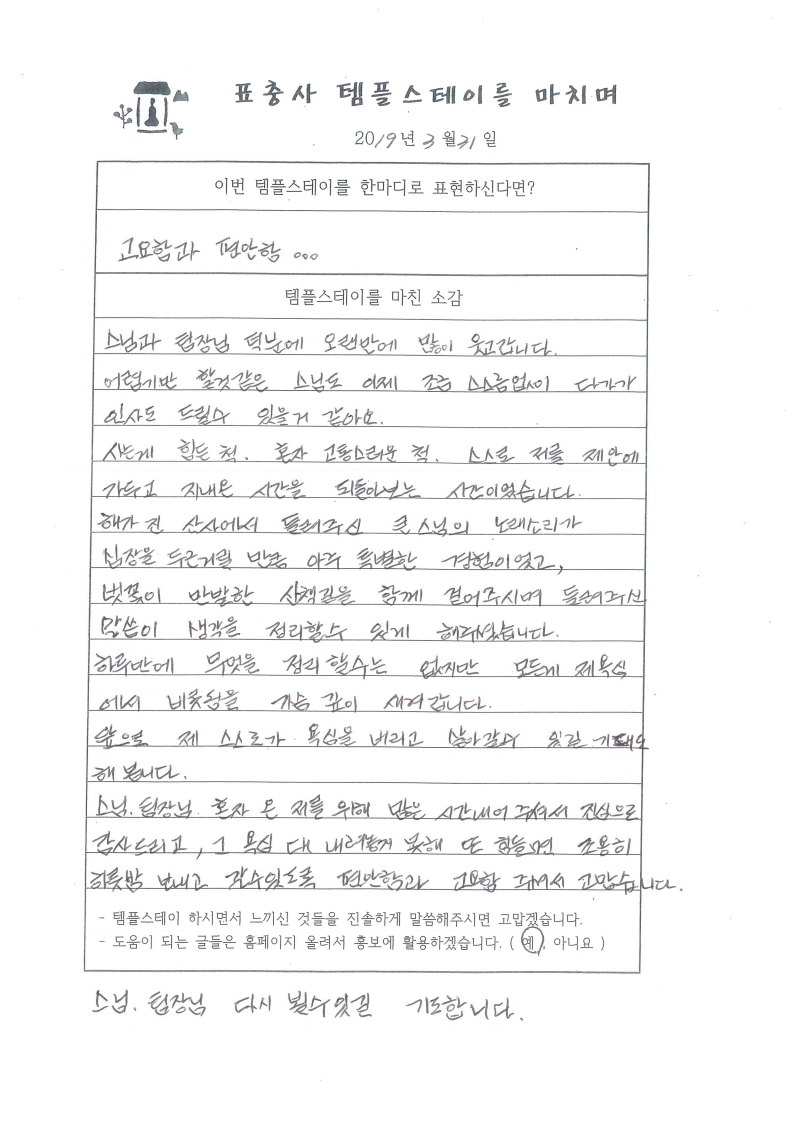 표충사 템플스테이를 마치며
2019년 3월31일
이번 템플스테이를 한마디로 표현하신다면?
고요함과 편안함...
템플스테이를 마친 소감
스님과 팀장님 덕분에 오랜만에 많이 웃고갑니다.
어렵기만 할것같은 스님도 이제 조금 스스럼없이 다가가
인사도 드릴수 있을거 같아요.
사는게 힘든 척. 혼자 고통스러운 척. 스스로 저를 제안에
가두고 지내온 시간을 되돌아보는 시간이었습니다.
해가 진 산사에서 들려주신 큰스님의 노래소리가
심장을 두근거릴 만큼 아주 특별한 경험이었고,
벚꽃이 만발한 산책길을 함께 걸어주시며 들려주신
말씀이 생각을 정리할수 있게 해주셨습니다.
하루만에 무엇을 정리 할수는 없지만 모든게 제욕심
에서 비롯됨을 가슴 깊이 새겨갑니다.
앞으로 제 스스로가 욕심을 버리고 살아갈수 있길 기대도
해 봅니다.
스님. 팀장님. 혼자 온 저를 위해 많은 시간내어 주셔서 진심으로
감사드리고, 그 욕심 다 내려놓지 못해 또 힘들면 조용히
하룻밤 보내고 갈수있도록 편안함과 고요함 주셔서 고맙습니다.
- 템플스테이 하시면서 느끼신 것들을 진솔하게 말씀해주시면 고맙겠습니다.
- 도움이 되는 글들은 홈페이지 올려서 홍보에 활용하겠습니다. ( 예, 아니요 )
스님. 팀장님 다시 뵐수있길 기도합니다.